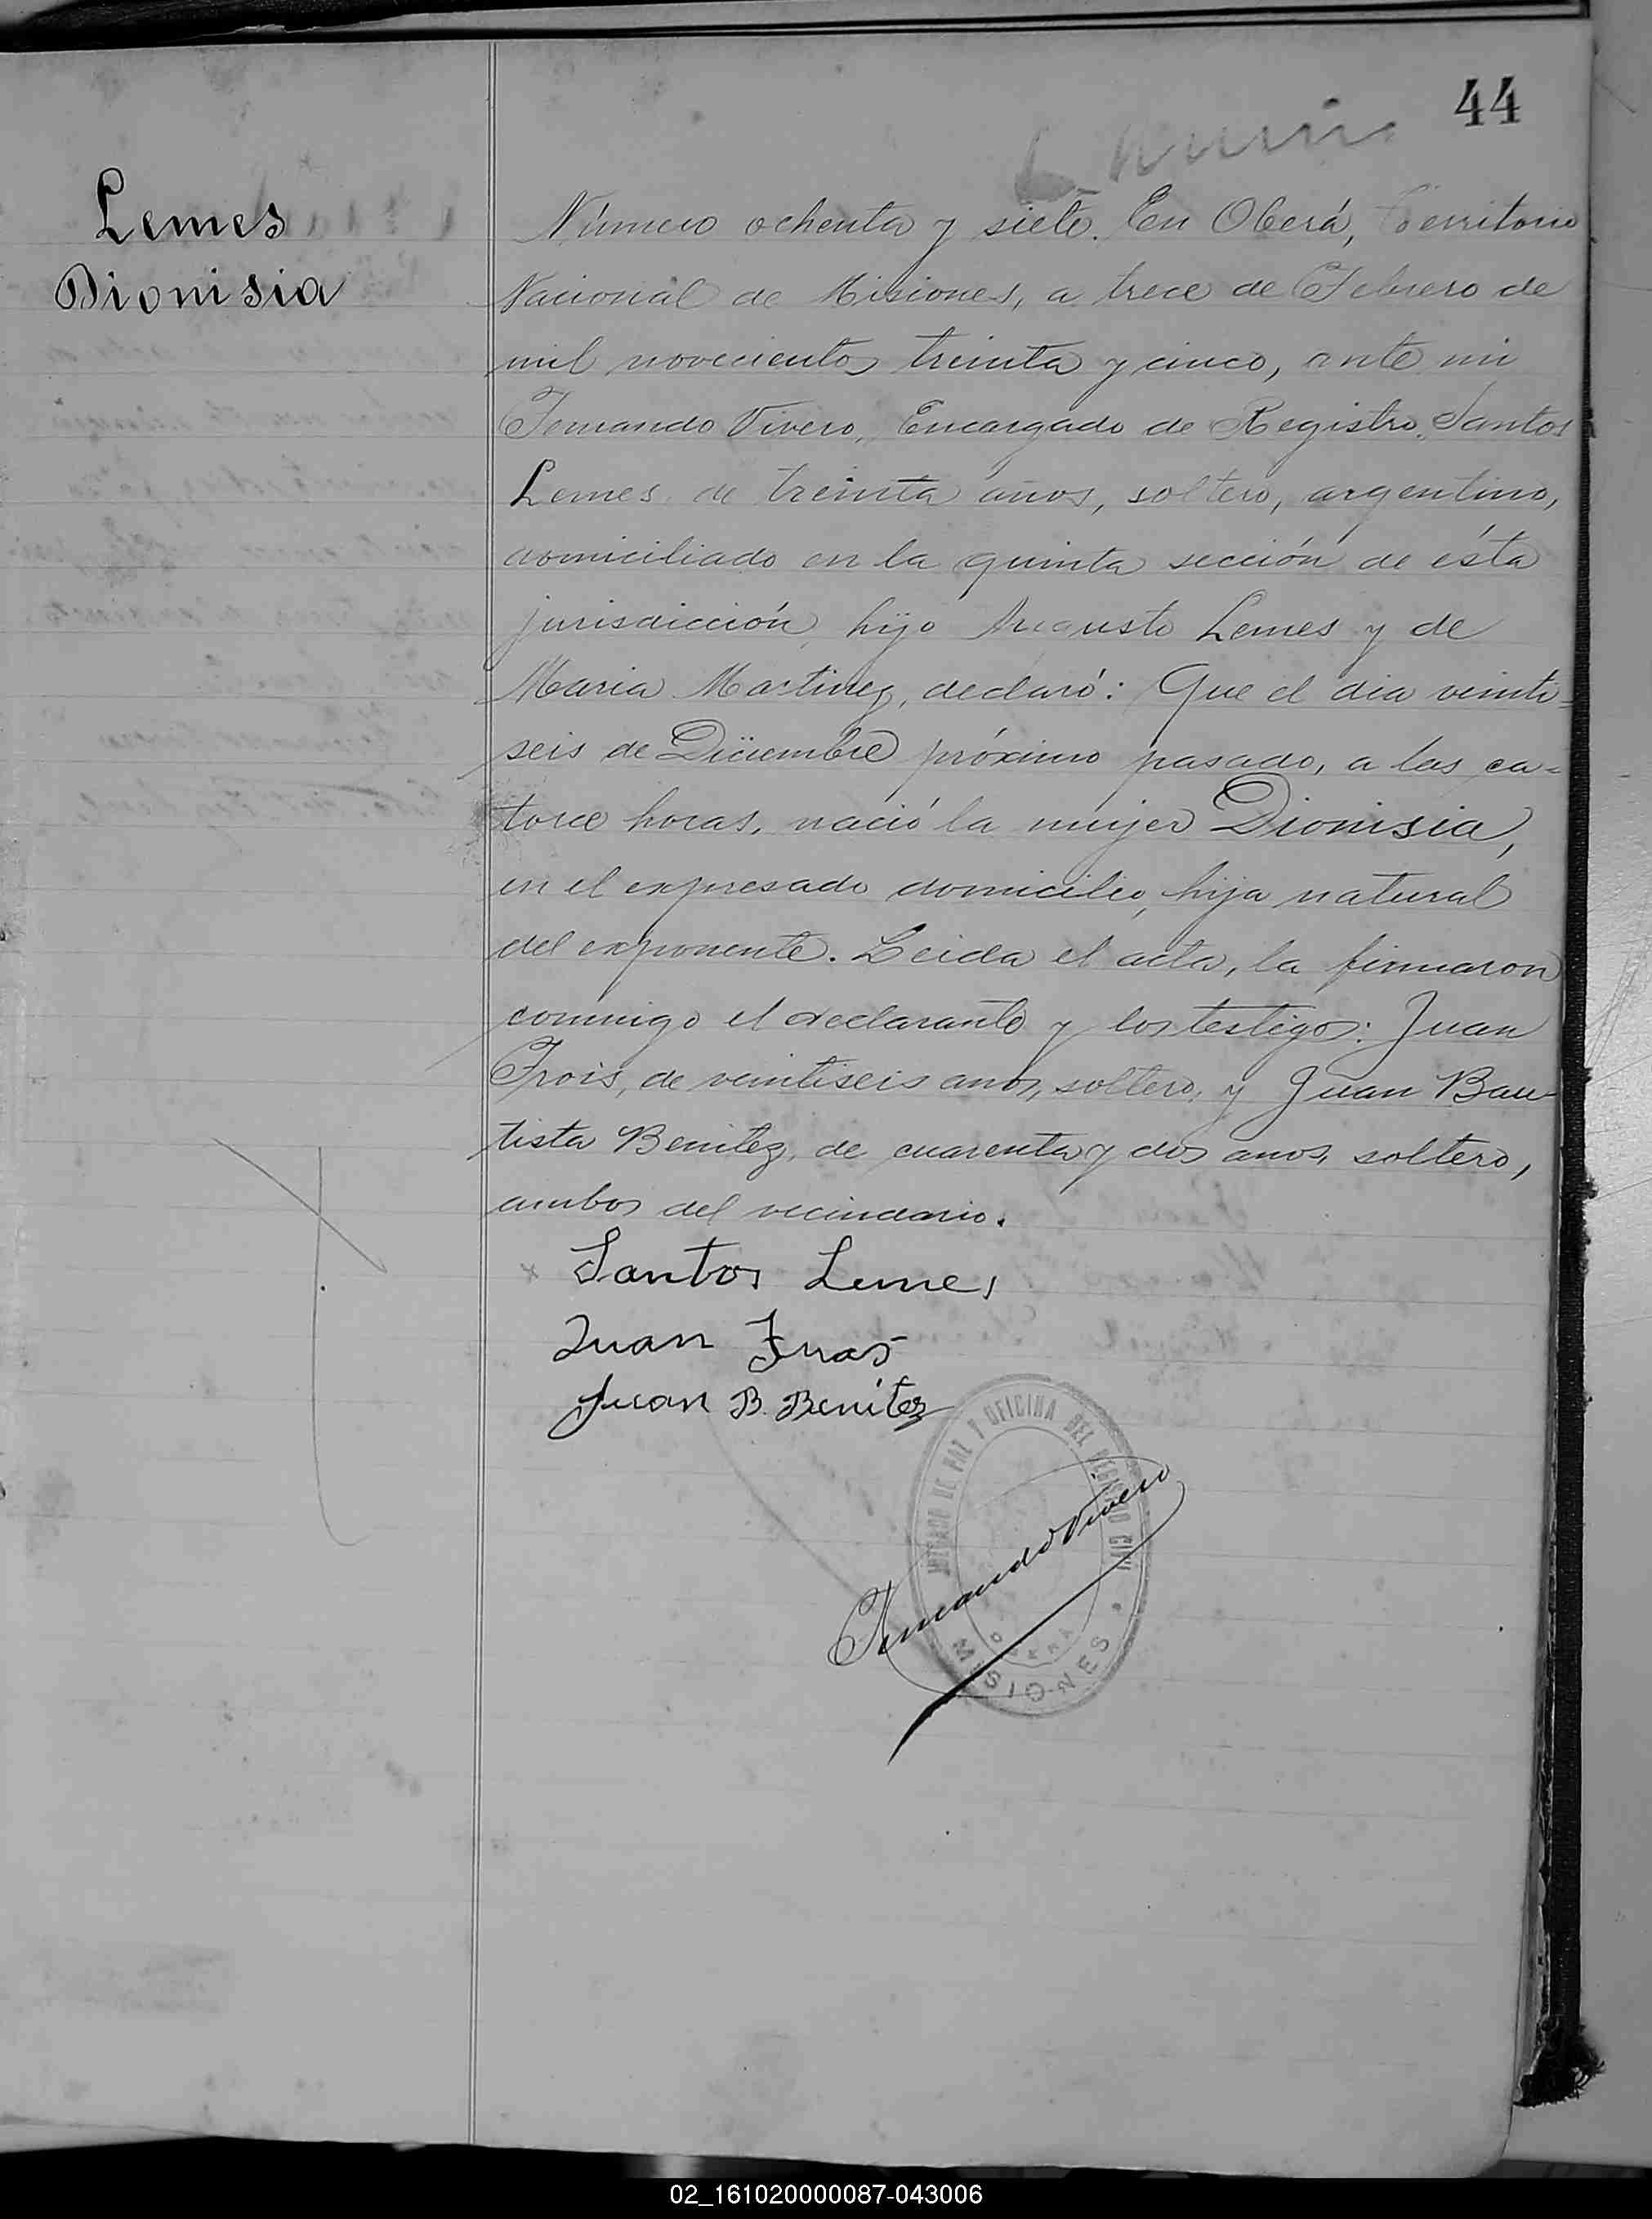 44
Lemes
Dionisia
Número ochenta y siete. En Oberá, Territorio
Nacional de Misiones, a trece de Febrero de
mil novecientos treinta y cinco, ante mi
Fernando Vivero, Encargado de Registro, Santos
Lemes, de treinta años, soltero, argentino,
domiciliado en la quinta sección de ésta
jurisdicción, hijo Augusto Lemes y de
Maria Martinez, declaró: Que el dia veinti-
seis de Diciembre próximo pasado, a las ca=
torce horas, nació la mujer Dionisia,
en el expresado domicilio, hija natural
del exponente. Leida el acta, la firmaron
conmigo el declarante y los testigos: Juan
Frois, de veintiseis años, soltero, y Juan Bau-
tista Benitez, de cuarenta y dos anos, soltero,
ambos del vecindario.
x Santos Lemes
Juan
Juan B. Benítez
JUZGADO DE PAZ Y OFICINA DEL REGISTRO CIVIL
Fernando Vivero
OBERÁ
MISIONES
02_161020000087-043006